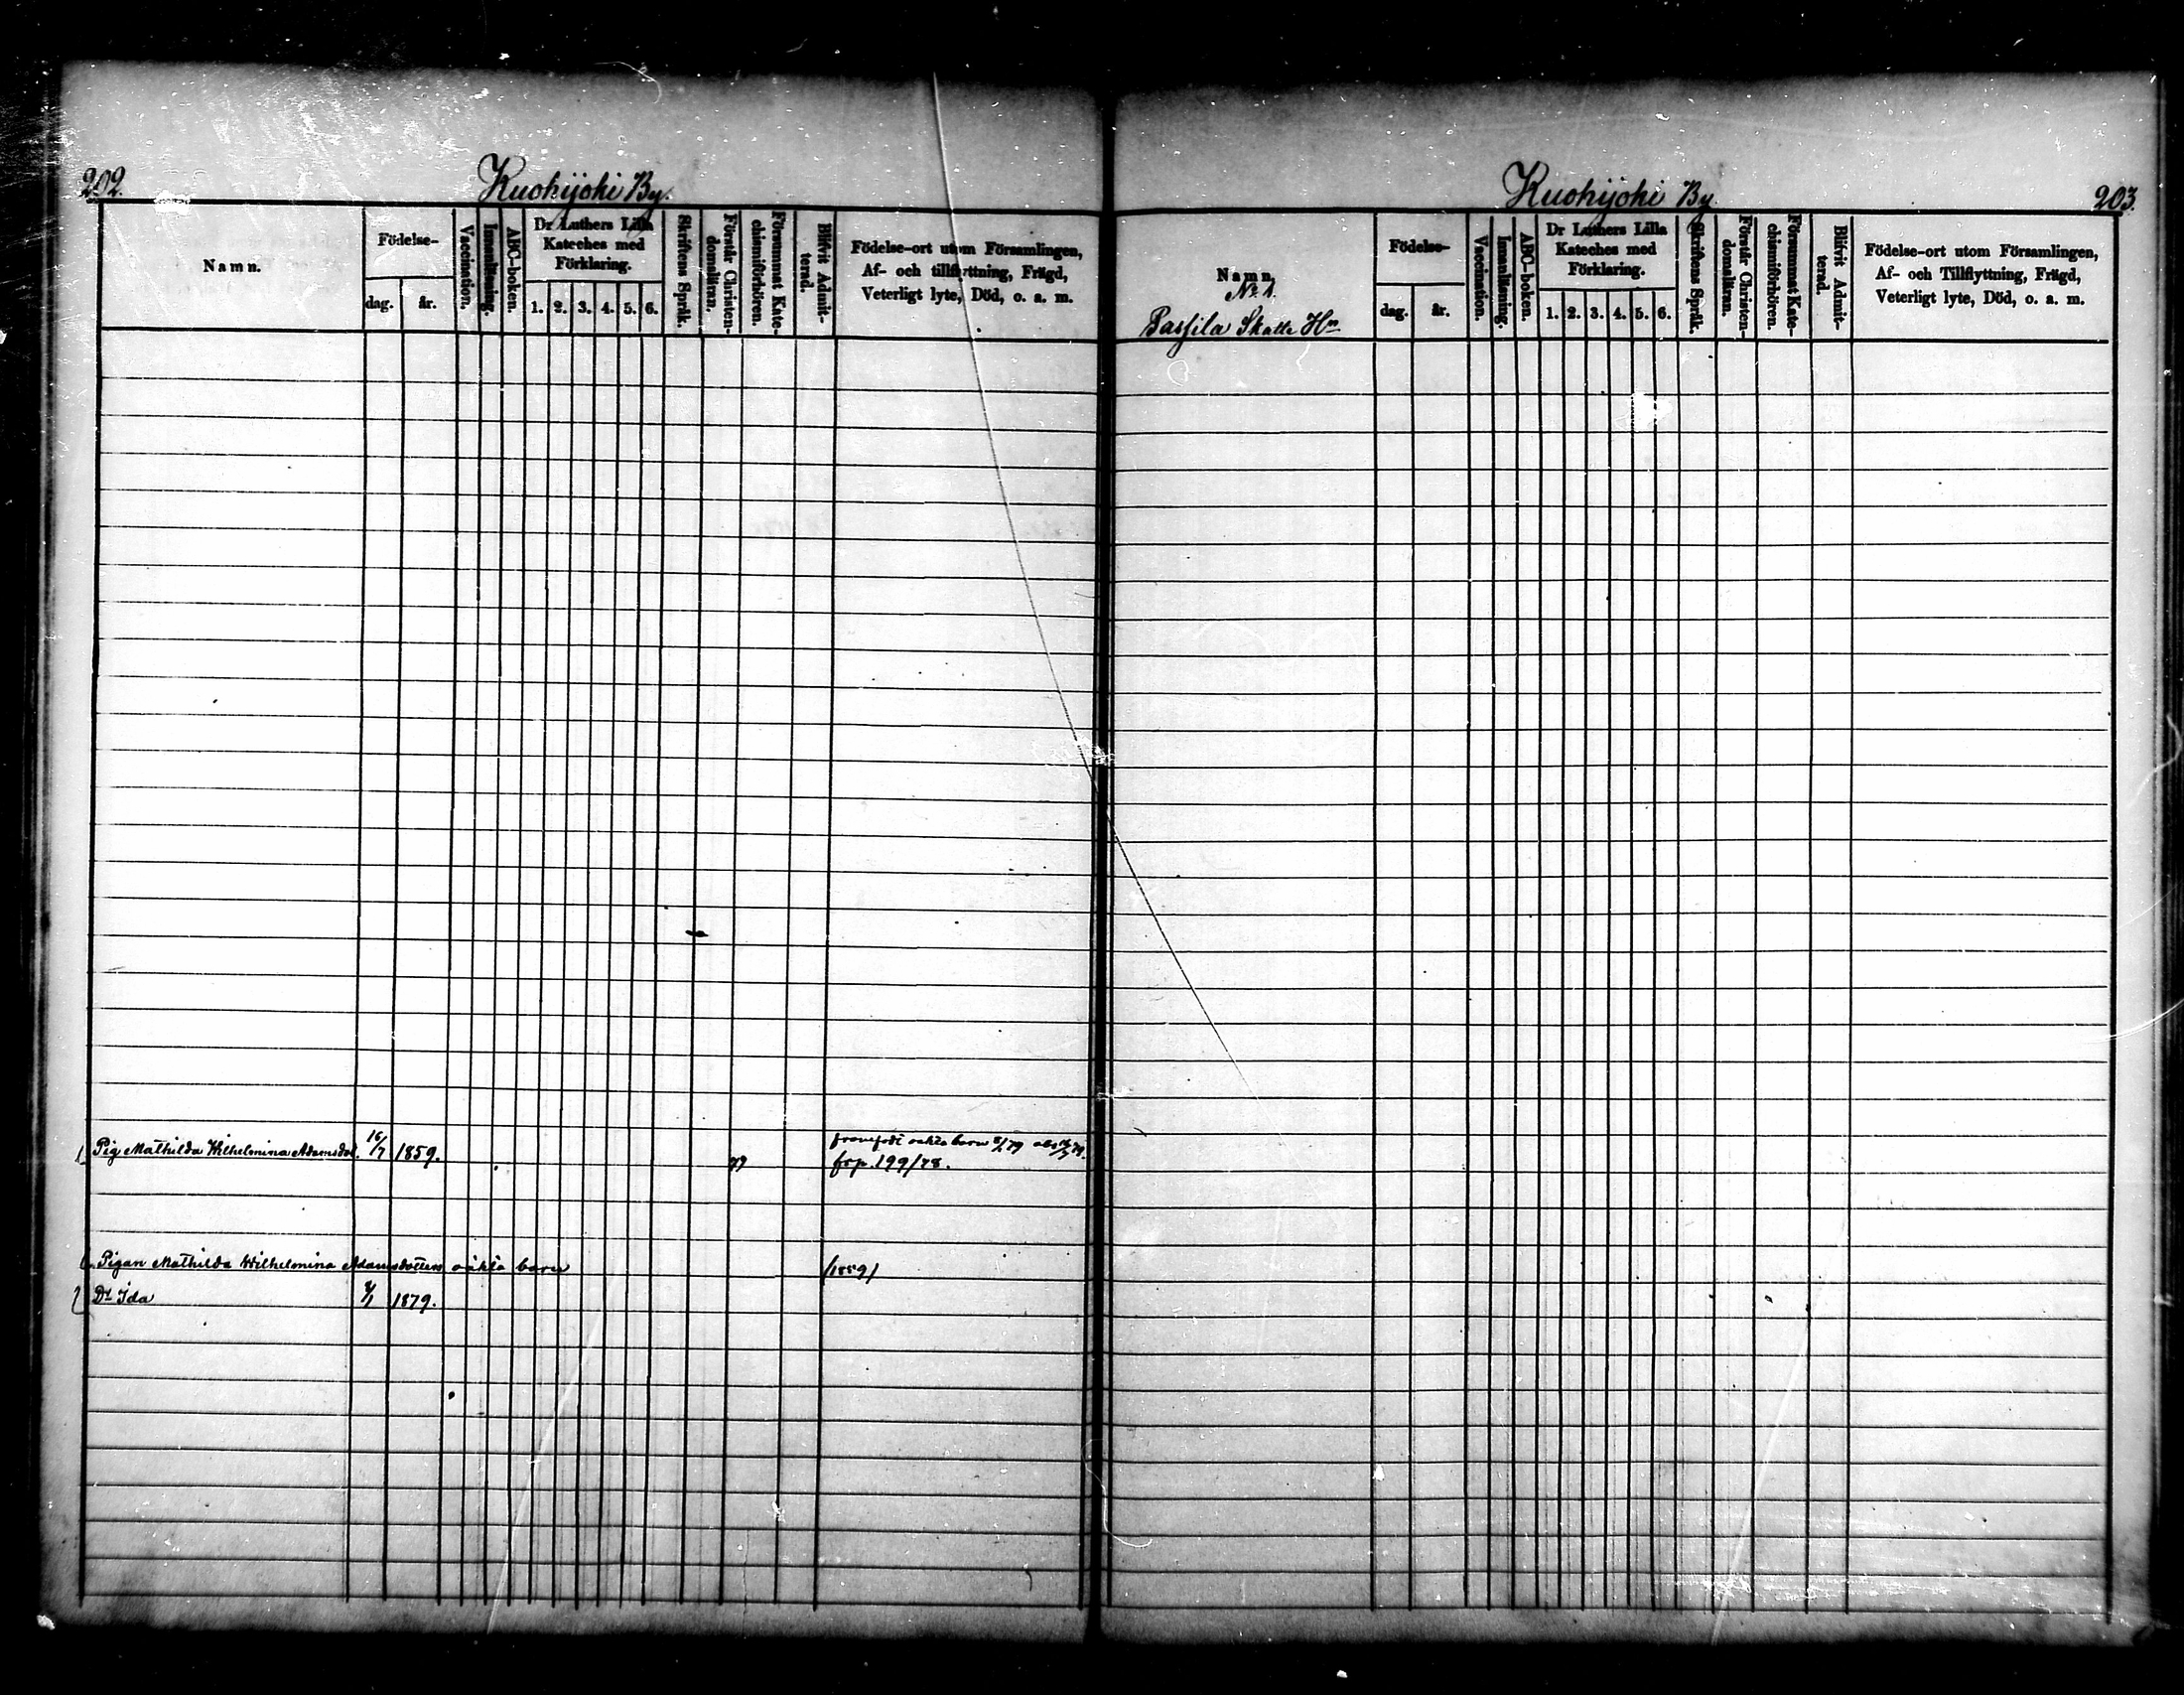 202.
Kuohijoki By.
Namn.
Födelse-
dag.
år.
Vaccination.
Innanläsning.
ABC-boken.
Dr Luthers Lilla
Kateches med
Förklaring.
1. 2. 3. 4. 5. 6.
Skriftens Språk.
Förstår Christen-
domsläran.
Försummat Kate-
chismiförhören.
Blifvit Admit-
terad.
Födelse-ort utom Församlingen,
Af- och tillflyttning, Frägd,
Veterligt lyte, Död, o. a. m.
framfödt oäkta barn 8/1 79
Pig Mathilda Wilhelmina Adamsdot. 16/7 1859. 79 frp. 199/78.
Pigan Mathilda Wilhelmina Adamsdotters oäkta barn /1859/
Dr Ida 8/1 1879.
Kuohijoki By
203.
Namn,
No 1.
Passila Skatte Hn
Födelse-
dag.
år.
Vaccination.
Innanläsning.
ABC-boken.
Dr Luthers Lilla
Kateches med
Förklaring.
1. 2. 3. 4. 5. 6.
Skriftens Språk.
Förstår Christen-
domsläran.
Försummat Kate-
chismiförhören.
Blifvit Admit-
terad.
Födelse-ort utom Församlingen,
Af- och Tillflyttning, Frägd,
Veterligt lyte, Död, o. a. m.